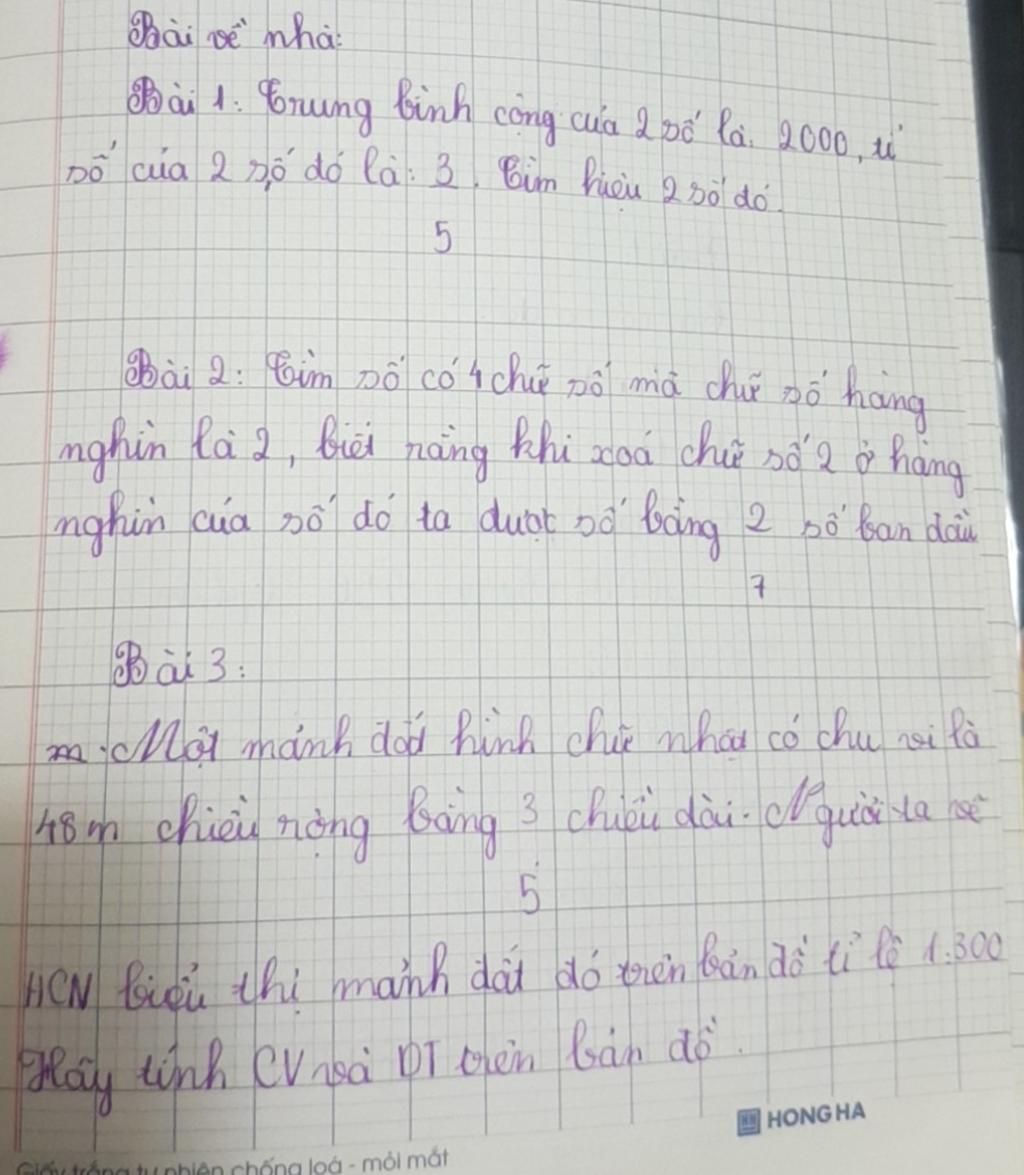 Bài về nhà:
Bài 1: Trung bình cộng của 2 số là: 2000, tỉ
số của 2 số đó là: 3. Tìm hiệu 2 số đó.
5
Bài 2: Tìm số có 4 chữ số mà chữ số hàng
nghìn là 2, biết rằng khi xoá chữ số 2 ở hàng
nghìn của số đó ta được số bằng 2 số ban đầu
7
Bài 3:
m. Một mảnh đất hình chữ nhật có chu vi là
48 m chiều rộng bằng 3 chiều dài. Người ta vẽ
5
HCN biểu thị mảnh đất đó trên bản đồ tỉ lệ 1:300
Hãy tính CV và DT trên bản đồ.
HONG HA
Giấy trắng tự nhiên chống loá - mỏi mắt